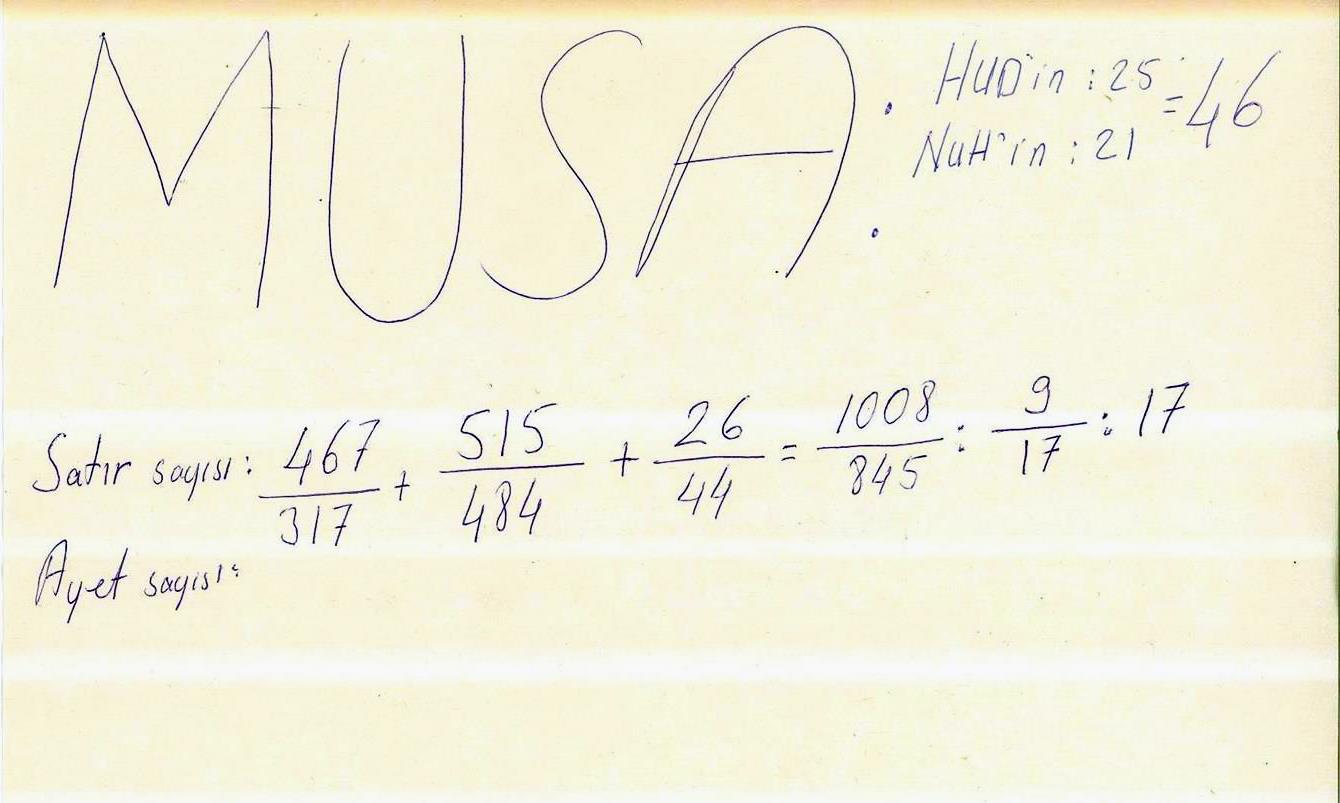 MUSA: HUD'in : 25 = 46
NuH'in : 21
Satır sayısı: 467/317 + 515/484 + 26/44 = 1008/845 : 9/17 : 17
Ayet sayısı: